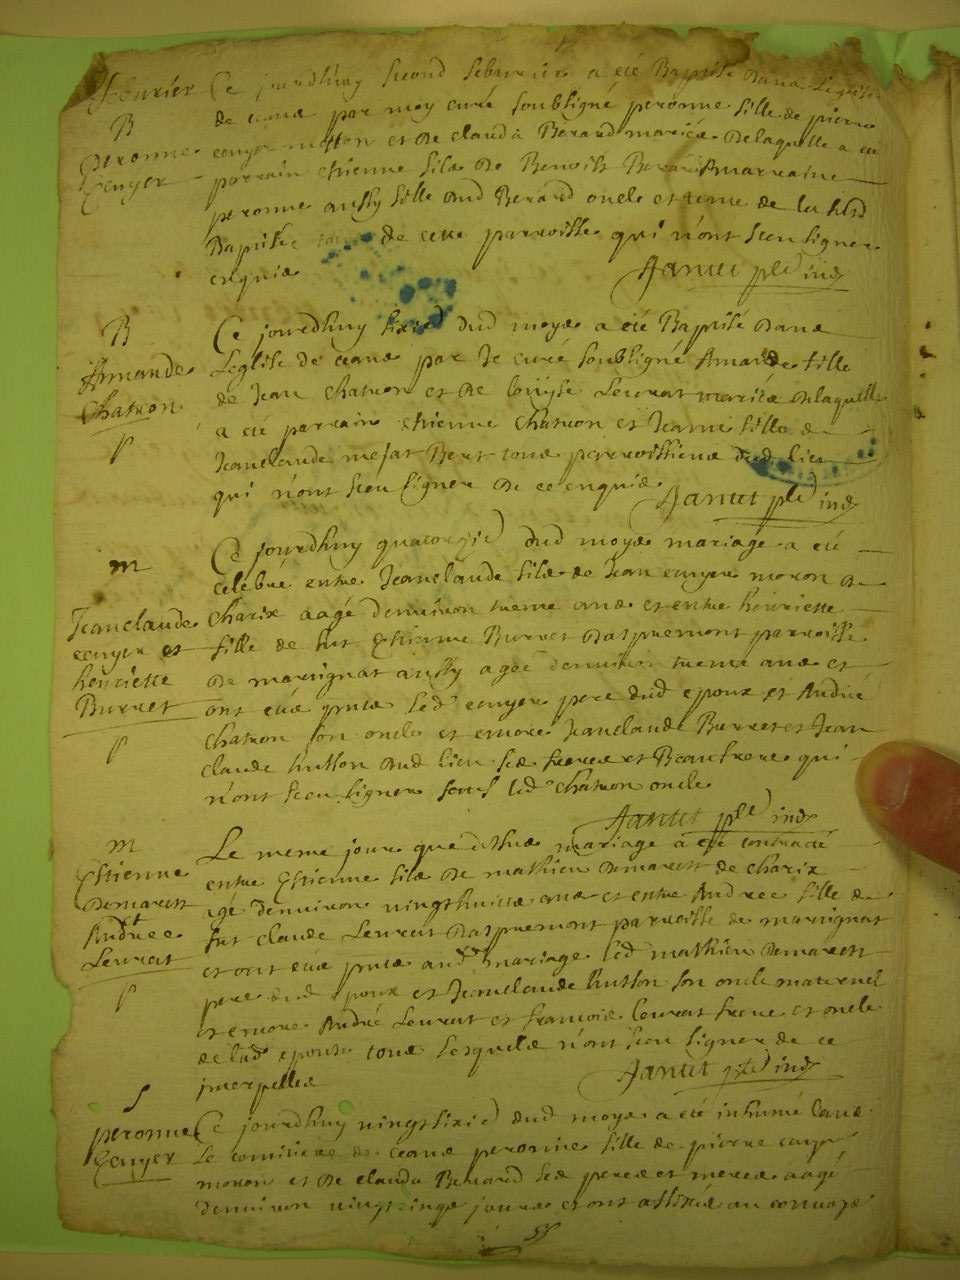 febvrier
B
peronne
Ecuyer
Ce jourdhuy second febvrier a été Baptisé dans Leglise
de ceans par moy curé soubsigné peronne fille de pierre
ecuyer moton et de clauda Berard mariés de laquelle a eté
parrain etienne fils de Benoist Berard marraine
peronne aussy fille dud Berard oncle et tente de la susd
Baptisée tous de cette parroisse qui n'ont sceu signer
enquis
Janet ptre ind
B
Amande
Chatron
p
Ce jourdhuy sixie dud moys a été Baptisé dans
Leglise de ceans par Je curé soubsigné Amande fille
de Jean chatron et de louyse Levrat mariés delaquelle
a été parrain etienne chatron et Jeanne fille de
Jeanclaude mejat Bert tous parroissiens dud lieu
qui n'ont sceu signer de ce enquis
Janet ptre ind
m
Jeanclaude
ecuyer et
henriette
Burret
p
Ce jourdhuy quatorzie dud moys mariage a été
celebré entre Jeanclaude fils de Jean ecuyer moron de
charix aagé denviron trente ans et entre henriette
fille de fut Estienne Burret daspremont parroisse
de martignat aussy agée denviron trente ans et
ont etés pntes led ecuyer pere dud epoux et André
chatron son oncle et encore Jeanclaude Burret et Jean
claude hutton dud lieu ses freres et Beaufrere qui
n'ont sceu signer sauf led chatron oncle
Janet ptre ind
m
Estienne
Demarest
et
Andree
Levrat
p
Le meme jour que dessus mariage a eté contracté
entre Estienne fils de mathieu Demarest de charix
agé denviron vingthuits ans et entre Andree fille de
fut claude Levrat daspremont parroisse de martignat
et ont etés pntes aud mariage led mathieu Demarest
pere dud epoux et Jeanclaude hutton son oncle maternel
et encore André Levrat et francois levrat frere et oncle
de lad epouse tous lesquels n'ont sceu signer de ce
interpellés
Janet ptre ind
S
peronne
Ecuyer
Ce jourdhuy vingtsixie dud moys a été inhumé dans
Le cemitiere de ceans peronne fille de pierre ecuyer
moton et de clauda Berard ses peres et meres aagé
denviron vingtcinqs jours et ont assistés au convoys